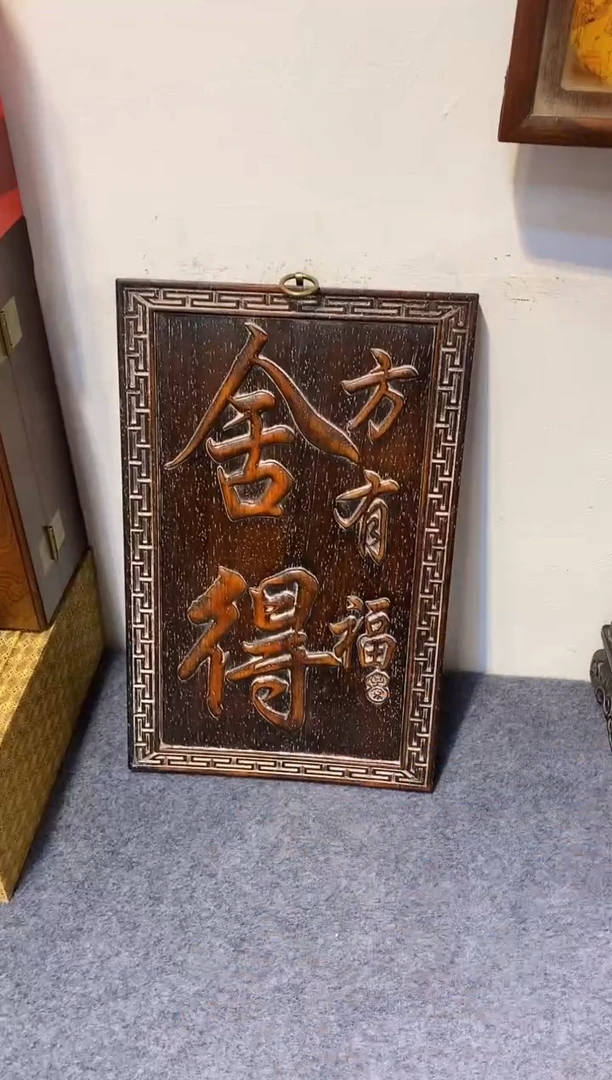 舍得
方有福